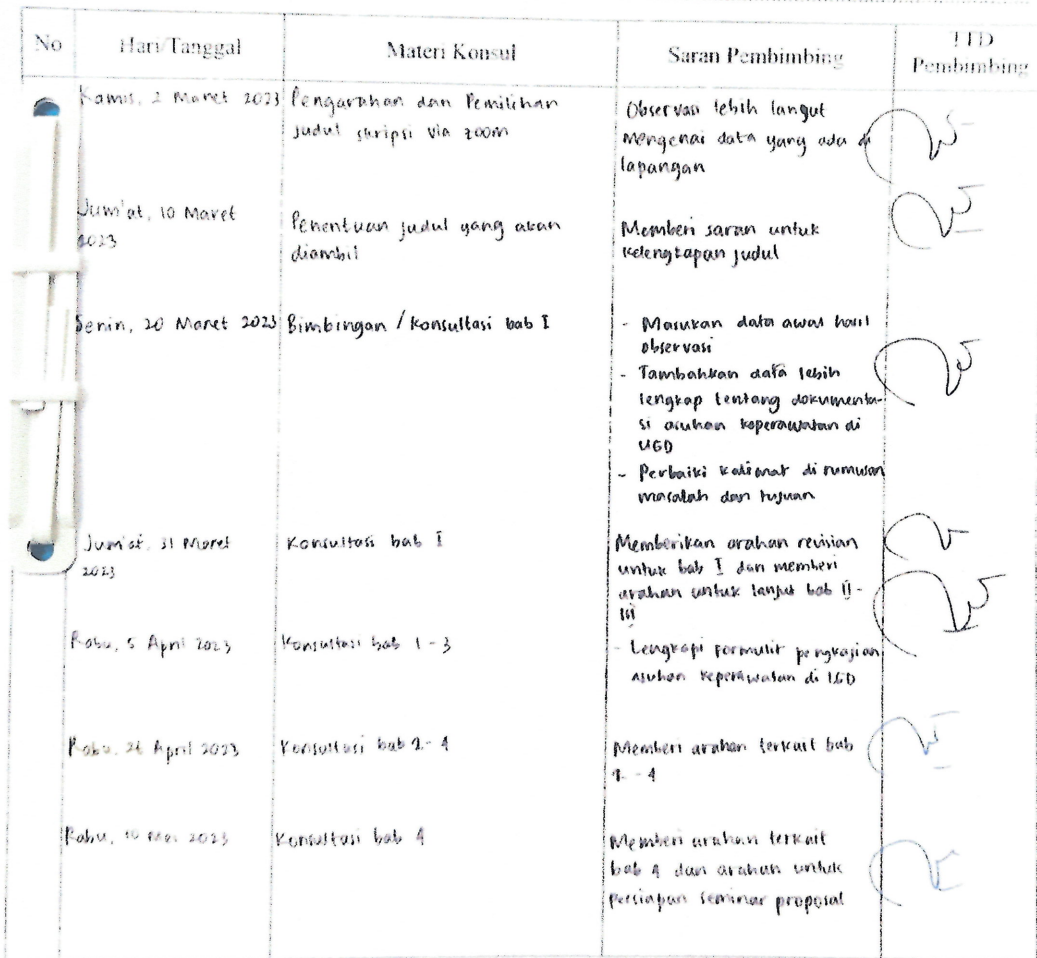 No
Hari/Tanggal
Materi Konsul
Saran Pembimbing
TTD
Pembimbing
Kamis, 2 Maret 2023
Pengarahan dan Pemilihan
judul skripsi via zoom
Observasi lebih langut
Mengenai data yang ada di
lapangan
Jum'at, 10 Maret
2023
Penentuan judul yang akan
diambil
Memberi saran untuk
kelengkapan judul
Senin, 20 Maret 2023
Bimbingan / konsultasi bab I
- Masukan data awal hasil
observasi
- Tambahkan data lebih
lengkap tentang dokumenta-
si asuhan keperawatan di
UGD
- Perbaiki kalimat di rumusan
masalah dan tujuan
Jum'at, 31 Maret
2023
Konsultasi bab I
Memberikan arahan revisian
untuk bab I dan memberi
arahan untuk lanjut bab II-
III
Rabu, 5 April 2023
Konsultasi bab 1 - 3
- Lengkapi formulir pengkajian
asuhan keperawatan di IGD
Rabu, 26 April 2023
Konsultasi bab 2 - 4
Memberi arahan terkait bab
2 - 4
Rabu, 10 Mei 2023
Konsultasi bab 4
Memberi arahan terkait
bab 4 dan arahan untuk
persiapan seminar proposal